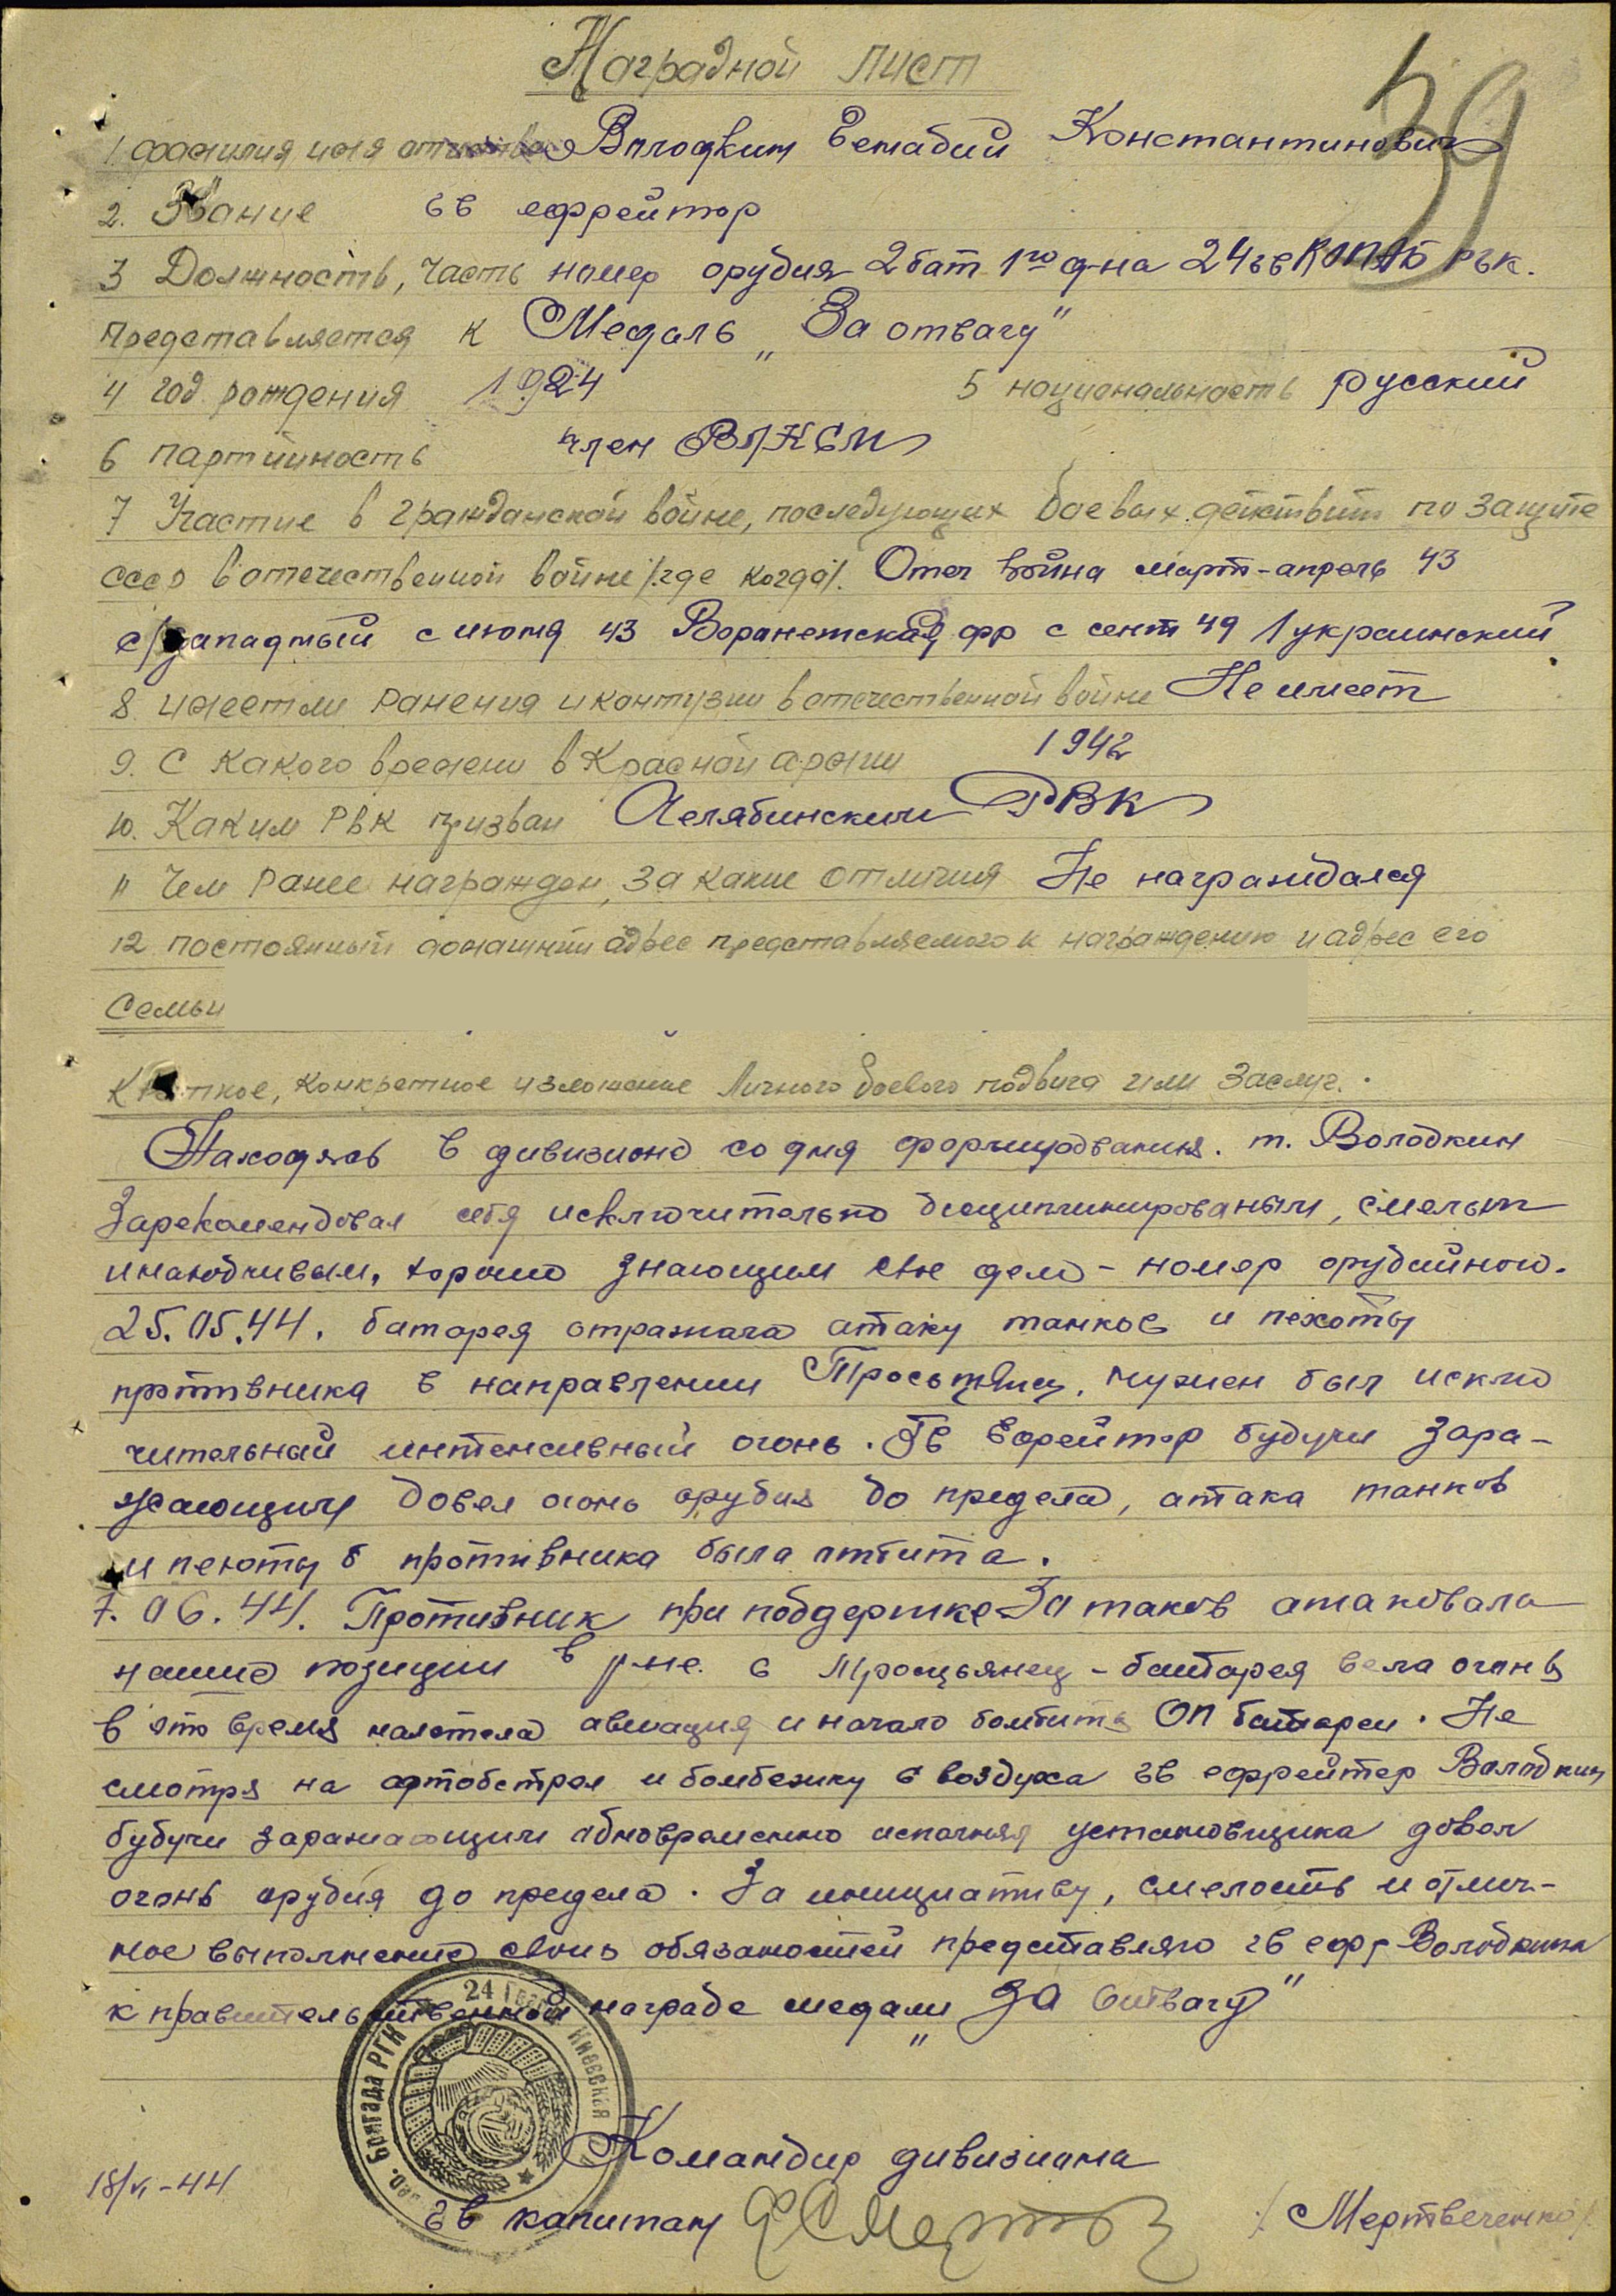 Наградной лист
39
1 фамилия имя отчество Володкин Генадий Константинович
2. Звание гв ефрейтор
3 Должность, часть номер орудия 2 бат 1го д-на 24 гв КОПАБ РГК.
представляется к Медаль „За отвагу"
4 год рождения 1924 5 национальность русский
6 партийность член ВЛКСМ
7 Участие в гражданской войне, последующих боевых действиях по защите
СССР в отечественной войне /где когда/. Отеч война март-апрель 43
с/западный с июля 43 Воронежский фр с сент 49 1 украинский
8 имеет ли ранения и контузии в отечественной войне Не имеет
9. С какого времени в Красной армии 1942
10. Каким РВК призван Челябинским РВК
11 Чем ранее награжден, за какие отличия Не награждался
12 постоянный домашний адрес представляемого к награждению и адрес его
семьи
Краткое, конкретное изложение личного боевого подвига или заслуг.
Находясь в дивизионе со дня формирования. т. Володкин
Зарекомендовал себя исключительно дисциплинированым, смелым
и находчивым, хорошо знающим свое дело - номер орудийного.
25.05.44. батарея отражала атаку танков и пехоты
противника в направлении Тросьтянец, нужен был исклю
чительный интенсивный огонь. Гв Ефрейтор будучи заря-
жающим довел огонь орудия до предела, атака танков
и пехоты противника была отбита.
7.06.44. Противник при поддержке 30 таков атаковала
нашие позиции в р-не. с Тросцьянец - батарея вела огонь
в это время налетела авиация и начало бомбить ОП батареи. Не
смотря на артобстрел и бомбежку с воздуха гв ефрейтер Володкин
будучи заражающим одновременно исполняя установщика довел
огонь орудия до предела. За инициативу, смелость и отлич-
ное выполнение своих обязаностей представляю гв ефр Володкина
к правительственной награде медали „За Отвагу"
24 Гв Киевская
бригада РГК
Командир дивизиона
18/VI-44
гв капитан /Мертвеченко/